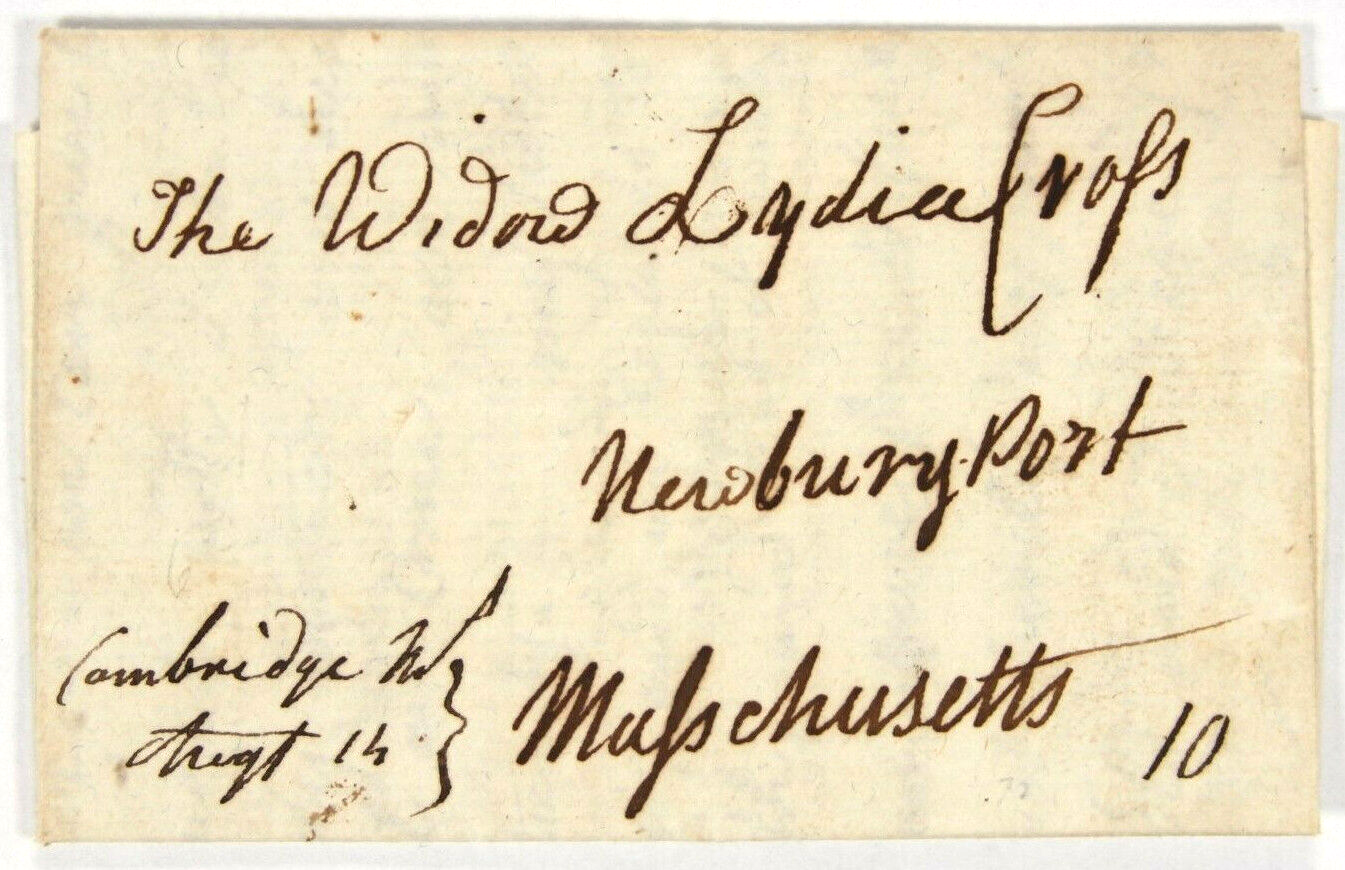 The Widow Lydia Croſs
Newbury Port
Maſschusetts
Cambridge
Augt 14
10